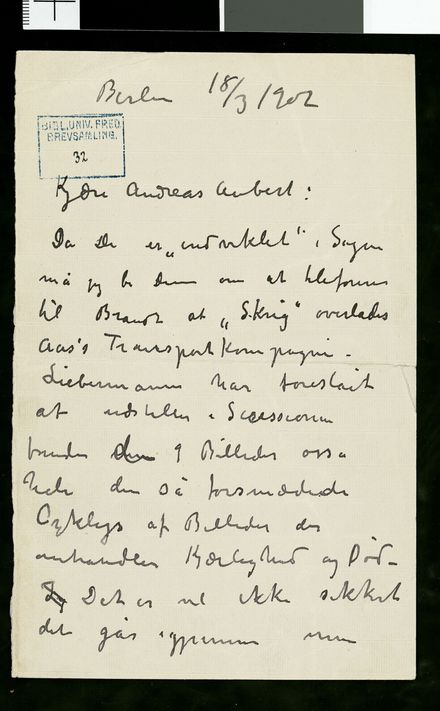 Berlin 18/3 1902
BIBL. UNIV. FRED.
BREVSAMLING.
32
Kjære Andreas Aubert:
Da De er „indviklet" i Sagen
må jeg be Dem om at telefonere
til Brandt at „Skrig" overlades
Aas's Transportkompagni –
Liebermann har foreslåt
at udstille i Secessionen
foruden 9 Billeder osså
hele den så forsmædede
Cyklys af Billeder der
omhandler Kjærlighed og Død –
Det er vel ikke sikkert
det gås igjennem men